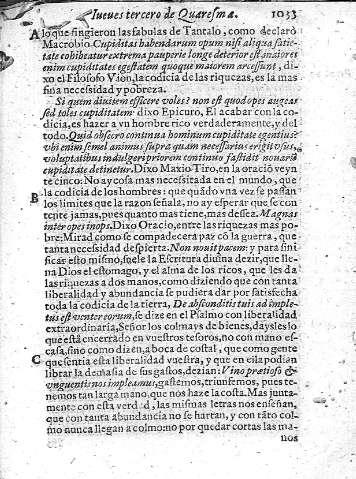 Iueues tercero de Quaresma. 1033
A lo que fingieron las fabulas de Tantalo, como declarò
Macrobio. Cupiditas habendarum opum nisi aliqua satie-
tate cohibeatur extrema pauperie longe deterior est maiores
enim cupiditates egestatem quoque maiorem arcessunt, di-
xo el Filosofo Vion, la codicia de las riquezas, es la mas
fina necessidad y pobreza.
Si quem divitem efficere voles? non est quod opes augeas
sed toles cupiditatem dixo Epicuro, El acabar con la co-
dicia, es hazer a vn hombre rico verdaderamente, y del
todo. Quid obsecro continua hominum cupiditate egentius?
vbi enim semel animus supra quam necessarius erigit vsus,
voluptatibus indulgeri priorem continuo fastidit nouarū
cupiditate detinetur. Dixo Maxio Tiro, en la oraciõ veyn
te cinco: No ay cosa mas necessitada en el mundo, que
B la codicia de los hombres: que quãdo vna vez se passan
los limites que la razon señala, no ay esperar que se con
tente jamas, pues quanto mas tiene, mas dessea. Magnas
inter opes inops. Dixo Oracio, entre las riquezas mas po-
bre: Mirad como se compadecera paz cõ la guerra, que
tanta necessidad despierta. Non mouit pacem: y para sini-
ficar esto mismo, suele la Escritura diuina dezir, que lle-
na Dios el estomago, y el alma de los ricos, que les da
las riquezas a dos manos, como diziendo que con tanta
liberalidad y abundancia se pudiera dar por satisfecha
toda la codicia de la tierra. De absconditis tuis adimple-
tus est venter eorum, se dize en el Psalmo con liberalidad
extraordinaria, Señor los colmays de bienes, days les lo
que està encerrado en vuestros tesoros, no con mano es-
casa, sino como dizen, a boca de costal, que como gente
C que sentia esta liberalidad vuestra, y que en ella podian
librar la demasia de sus gastos, dezian: Vino pretioso &
vnguentis nos impleamus, gastemos, triunfemos, pues te-
nemos tan larga mano, que nos haze la costa. Mas junta-
mente con esta verdad, las mismas letras nos enseñan,
que con tanta abundancia no se hartan, y con tãto col-
mo nunca llegan a colmo: no por quedar cortas las ma-
nos